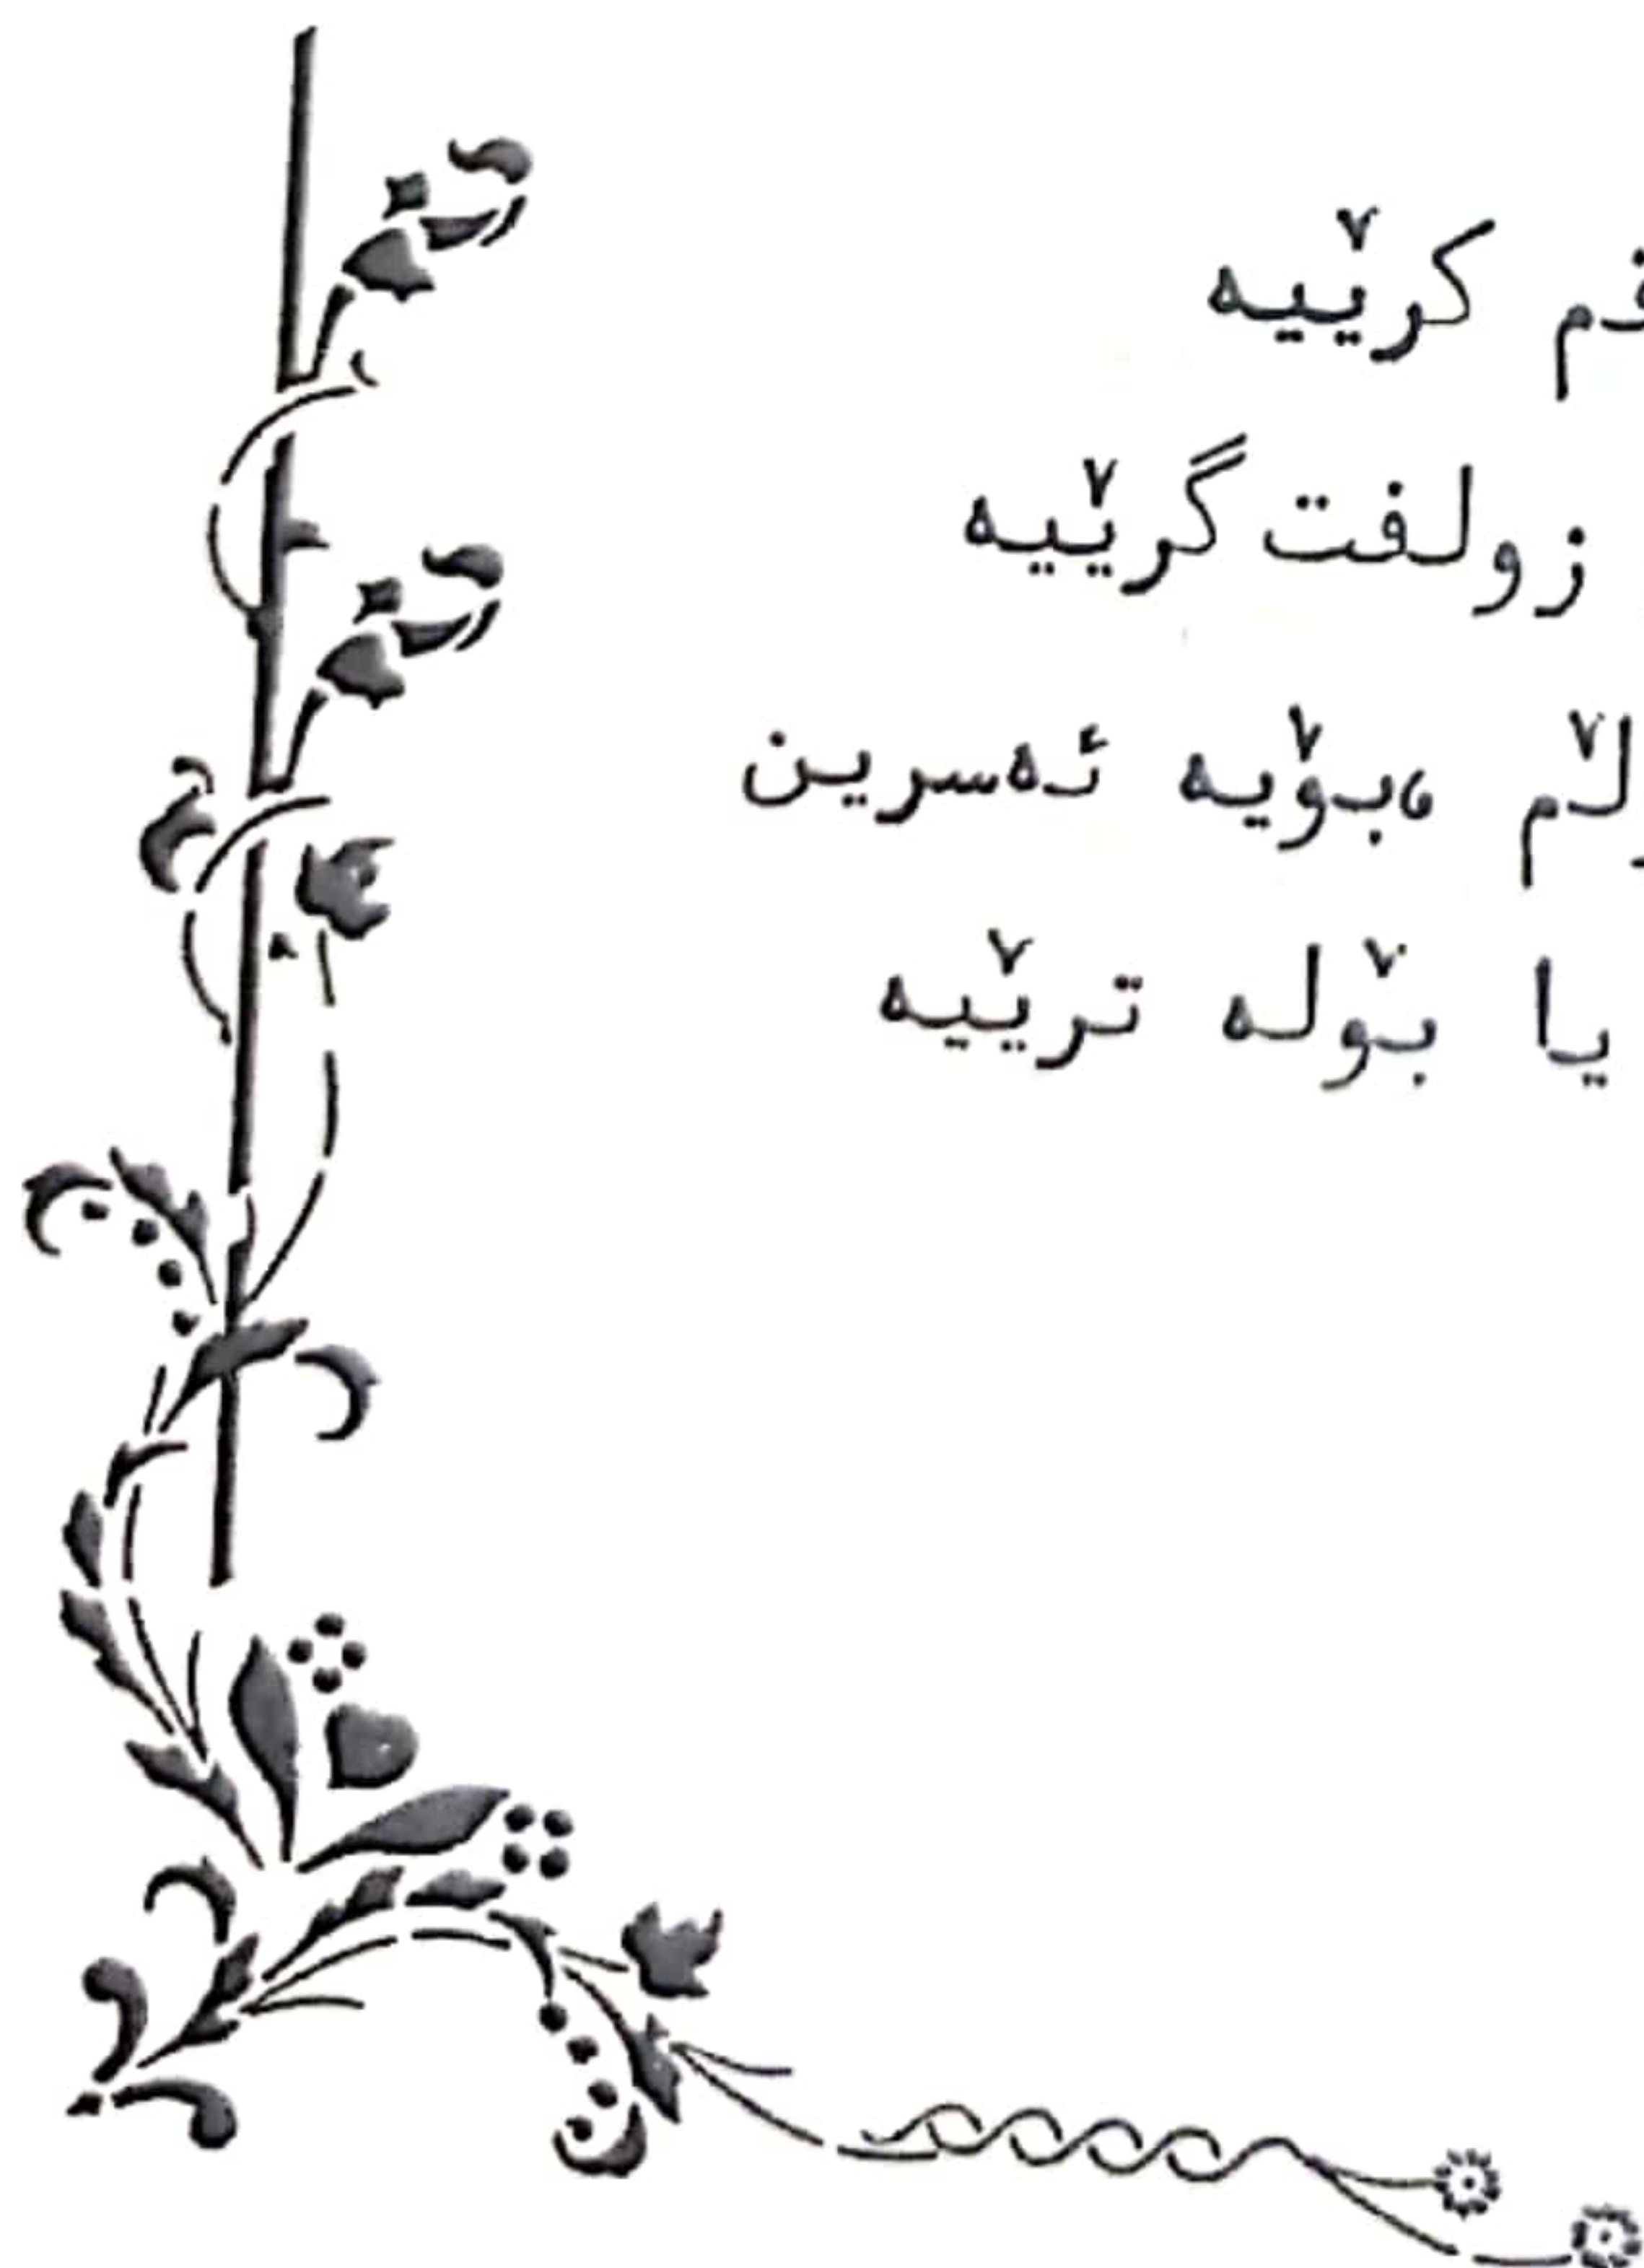 کرێیە
زولفت گرێیە
،بۆیە ئەسرین
یا بۆلە ترێیە